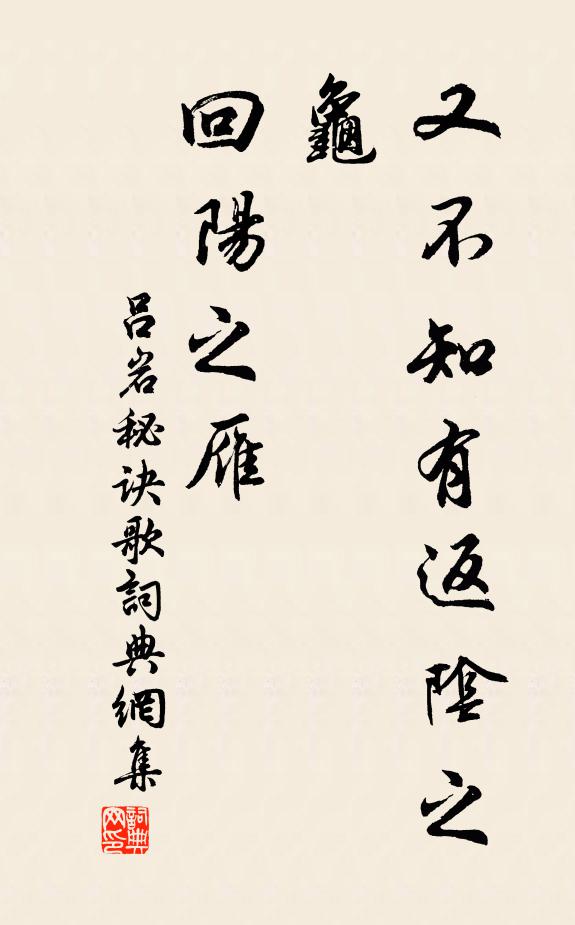 又不知有返陰之
龜
回陽之雁
吕岩秘诀歌詞典網集
詞典
网印